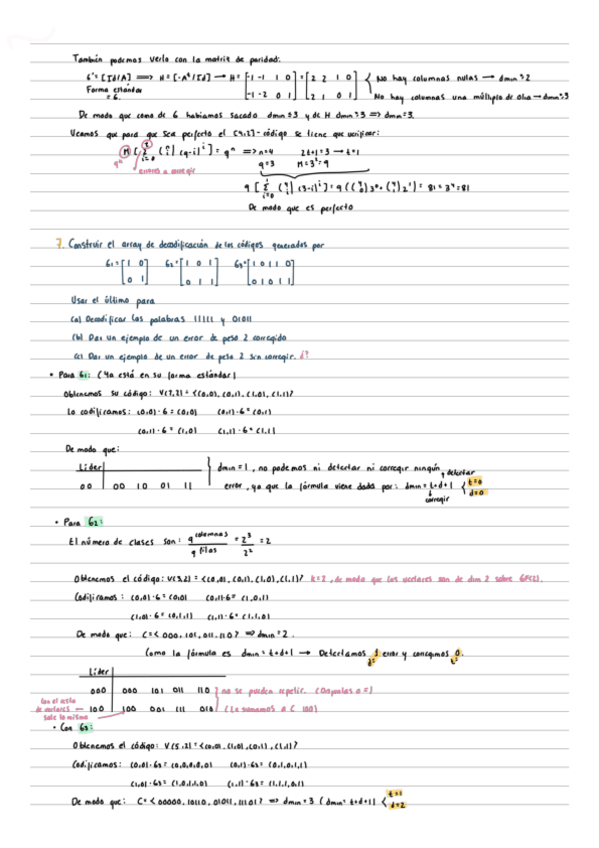 También podemos verlo con la matriz de paridad:
G'= [Id/A] ⟹ H = [-Aᵗ/Id] → H = [-1 -1 1 0 / -1 -2 0 1] = [2 2 1 0 / 2 1 0 1] { No hay columnas nulas → dmin ≥ 2
Forma estándar = G. No hay columnas una múltiplo de otra → dmin ≥ 3
De modo que como de G habíamos sacado dmin ≤ 3 y de H dmin ≥ 3 ⟹ dmin = 3.
Veamos que para que sea perfecto el [4,2]-código se tiene que verificar:
M [ Σ i=0 t (n i) (q-1)^i ] = q^n ⟹ n=4 2t+1=3 → t=1
q^k errores a corregir q=3 M=3²=9
9 [ Σ i=0 1 (4 i) (3-1)^i ] = 9 ((4 0) 2⁰ + (4 1) 2¹) = 81 = 3⁴ = 81
De modo que es perfecto
7. Construir el array de decodificación de los códigos generados por
G1= [1 0 / 0 1] G2= [1 0 1 / 0 1 1] G3= [1 0 1 1 0 / 0 1 0 1 1]
Usar el último para
(a) Decodificar las palabras 11111 y 01011
(b) Dar un ejemplo de un error de peso 2 corregido
(c) Dar un ejemplo de un error de peso 2 sin corregir. ¿?
• Para G1: (Ya está en su forma estándar)
Obtenemos su código: V(2,2) = {(0,0), (0,1), (1,0), (1,1)}
Lo codificamos: (0,0)·G = (0,0) (0,1)·G = (0,1)
(0,1)·G = (1,0) (1,1)·G = (1,1)
De modo que:
Líder dmin = 1, no podemos ni detectar ni corregir ningún detectar
00 00 10 01 11 error, ya que la fórmula viene dada por: dmin = t+d+1 { t=0 d=0
corregir
• Para G2:
El número de clases son: q columnas / q filas = 2³ / 2² = 2
Obtenemos el código: V(2,2) = {(0,0), (0,1), (1,0), (1,1)} k=2, de modo que los vectores son de dim 2 sobre GF(2).
Codificamos: (0,0)·G = (0,0) (0,1)·G = (1,0,1)
(1,0)·G = (0,1,1) (1,1)·G = (1,1,0)
De modo que: C = {000, 101, 011, 110} ⟹ dmin = 2.
Como la fórmula es dmin = t+d+1 → Detectamos 1 error y corregimos 0.
d= t=
Líder
000 000 101 011 110 } no se pueden repetir. (Cópialas a =)
100 100 001 111 010 (Lo sumamos a C 100)
sale lo mismo
• Con G3:
Obtenemos el código: V(5,2) = {(0,0), (1,0), (0,1), (1,1)}
Codificamos: (0,0)·G3 = (0,0,0,0,0) (0,1)·G3 = (0,1,0,1,1)
(1,0)·G3 = (1,0,1,1,0) (1,1)·G3 = (1,1,1,0,1)
De modo que: C = {00000, 10110, 01011, 11101} ⟹ dmin = 3 (dmin = t+d+1) { t=1 d=2